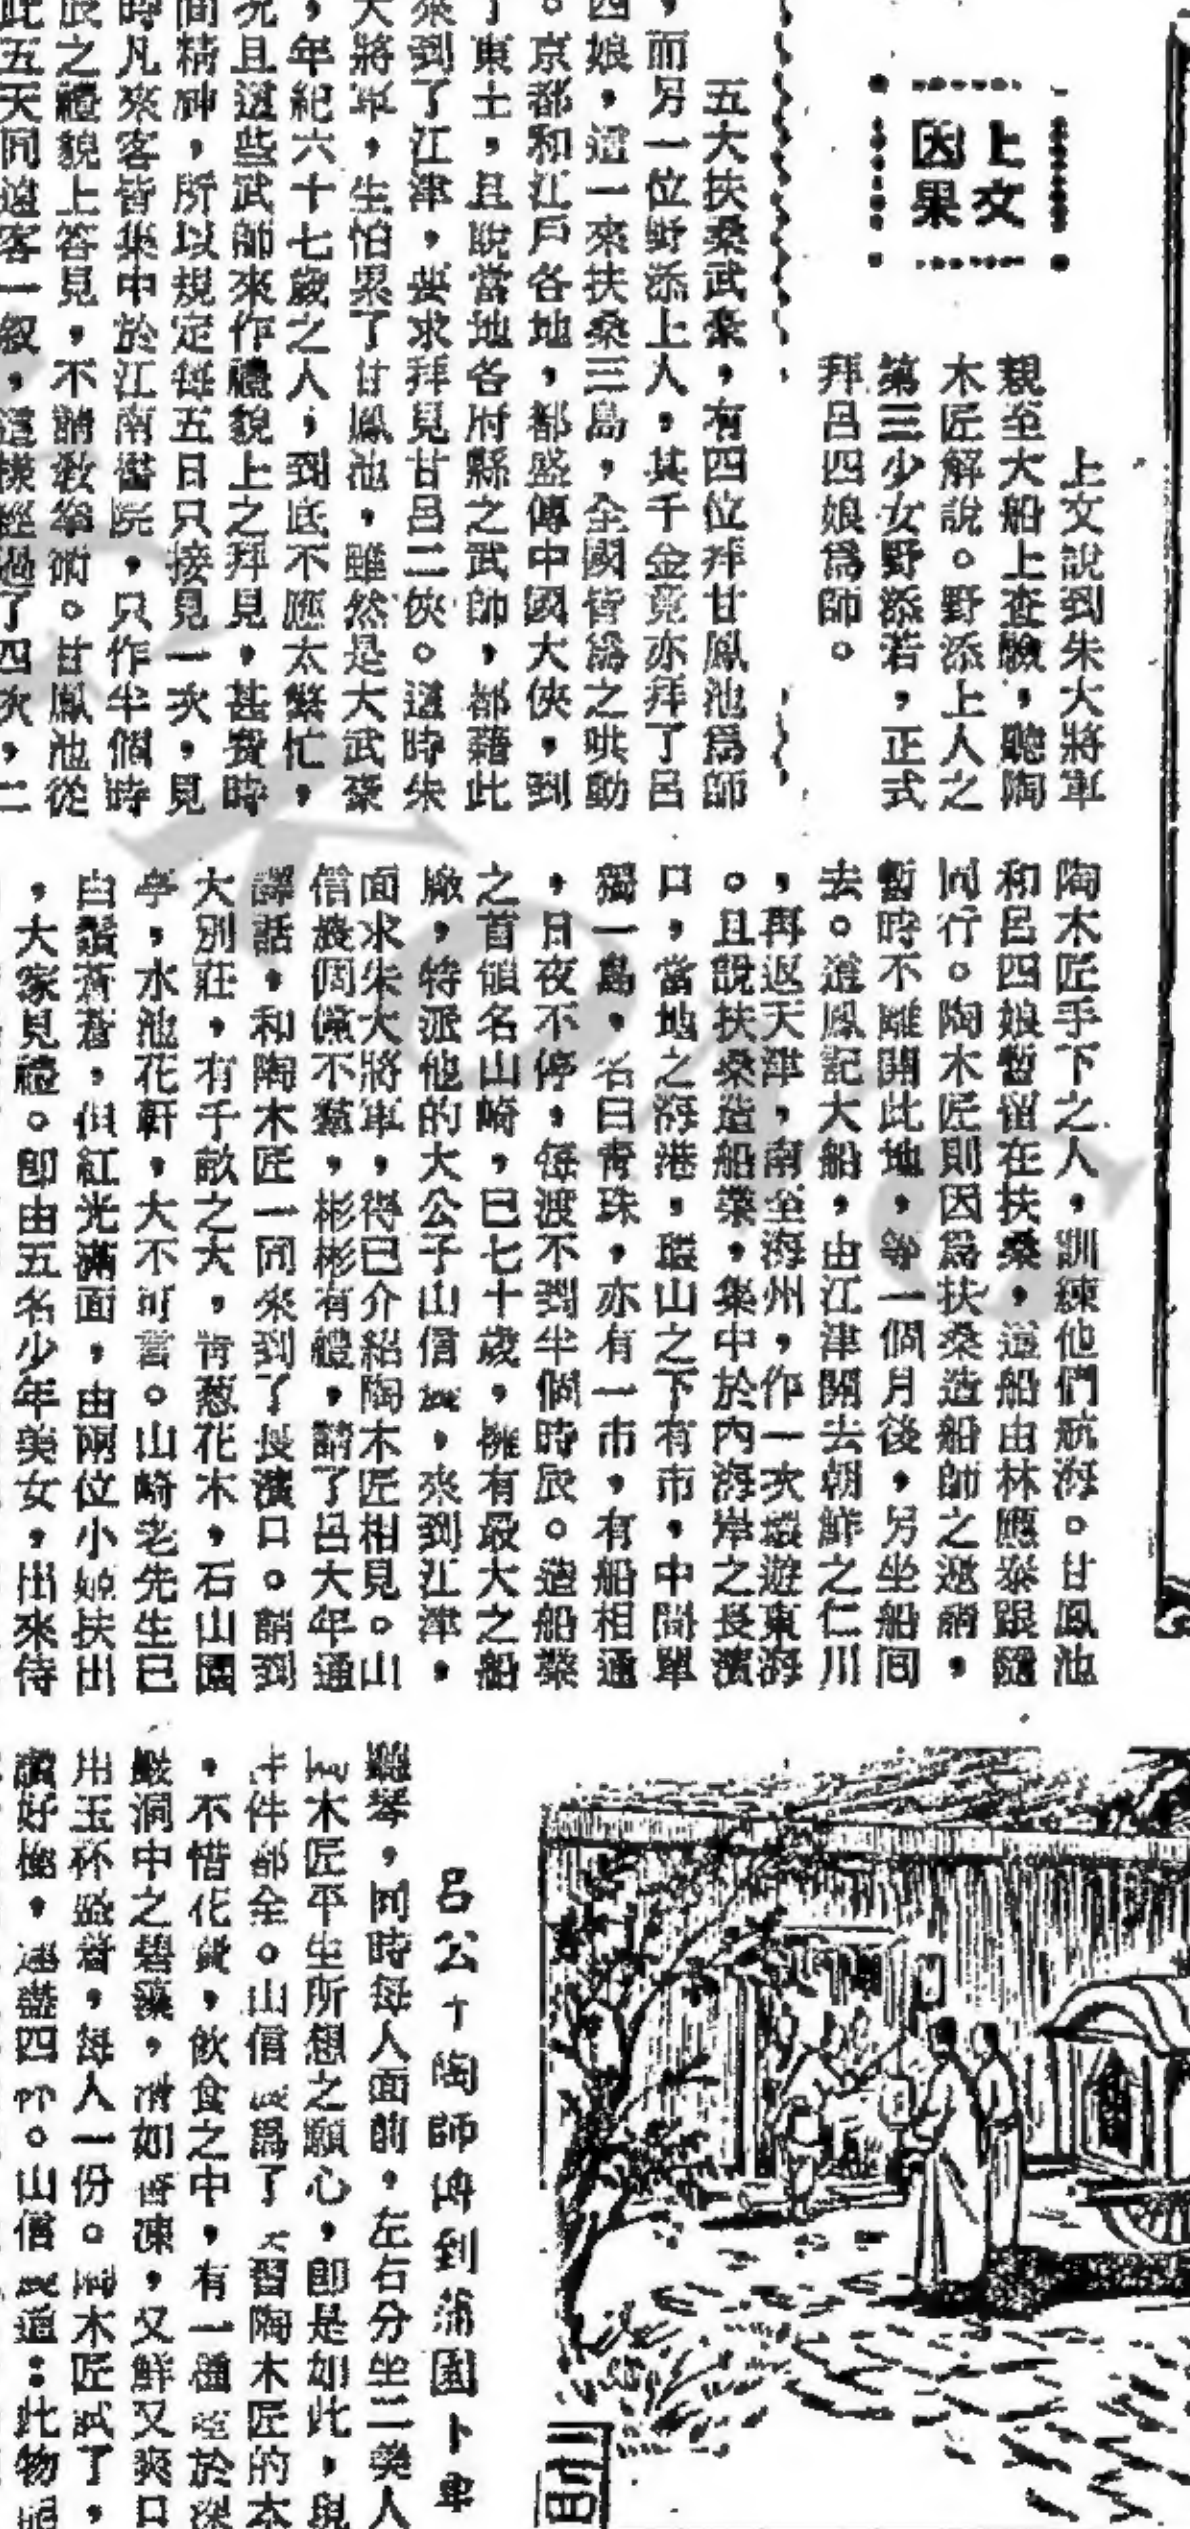 上文
因果
上文說到朱大將軍
親至大船上查驗，聽陶
木匠解說。野添上人之
第三少女野添若，正式
拜呂四娘爲師。
五大扶桑武豪，有四位拜甘鳳池爲師
，而另一位野添上人，其千金竟亦拜了呂
四娘，這一來扶桑三島，全國皆爲之哄動
。京都和江戶各地，都盛傳中國大俠，到
了東土，且說當地各府縣之武師，都藉此
來到了江津，要求拜見甘呂二俠。這時朱
大將軍，生怕累了甘鳳池，雖然是大武豪
，年紀六十七歲之人，到底不應太繁忙，
况且這些武師來作禮貌上之拜見，甚費時
間精神，所以規定每五日只接見一次，見
時凡來客皆集中於江南書院，只作半個時
辰之禮貌上答見，不請教拳術。甘鳳池從
此五天同遠客一叙，這樣經過了四次，二
陶木匠手下之人，訓練他們航海。甘鳳池
和呂四娘暫留在扶桑，這船由林應泰跟隨
同行。陶木匠則因爲扶桑造船師之邀請，
暫時不離開此地，等一個月後，另坐船回
去。這鳳記大船，由江津開去朝鮮之仁川
，再返天津，南至海州，作一次環遊東海
。且說扶桑造船業，集中於內海岸之長濱
口，當地之海港，環山之下有市，中間單
獨一島，名曰青珠，亦有一市，有船相通
，日夜不停，每渡不到半個時辰。造船業
之首領名山崎，已七十歲，擁有最大之船
廠，特派他的大公子山信，來到江津，
面求朱大將軍，得已介紹陶木匠相見。山
信個儻不羣，彬彬有禮，請了呂大年通
譯話，和陶木匠一同來到了長濱口。請到
大別莊，有千畝之大，青葱花木，石山園
亭，水池花軒，大不可言。山崎老先生已
白鬚蒼蒼，但紅光滿面，由兩位小姬扶出
，大家見禮。卽由五名少年美女，出來侍
呂公子陶師傅到蒲園下車
聽琴，同時每人面前，左右分坐二美人
陶木匠平生所想之願心，卽是如此，現
件件都全。山信爲了學習陶木匠的本
，不惜化費，飲食之中，有一種於深
巖洞中之碧藻，如凍，又鮮又爽口
用玉杯盛着，每人一份。陶木匠試了，
讚好極，連盡四杯。山信道：此物